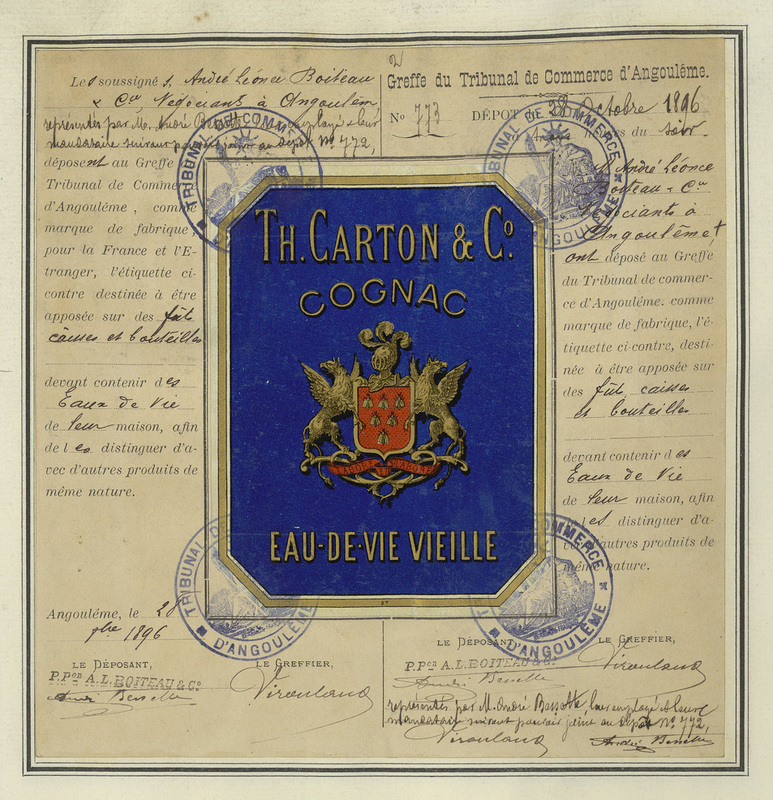 Les soussignés, André Léonce Boiteau
& Cie, Négocians à Angoulême,
représentés par M. André Bessette leur employé & leur
mandataire suivant pouvoir joint au dépôt No 772,
déposent au Greffe
Tribunal de Commerce
d'Angoulême, comme
marque de fabrique,
pour la France et l'E-
tranger, l'étiquette ci-
contre destinée à être
apposée sur des fûts
caisses et bouteilles
devant contenir des
Eaux de Vie
de leur maison, afin
de les distinguer d'a-
vec d'autres produits de
même nature.
Angoulême, le 28
8bre 1896
LE DÉPOSANT,
P.Pon A.L. BOITEAU & Co
LE GREFFIER,
TH. CARTON & Co.
COGNAC
LABORE ET
EAU-DE-VIE VIEILLE
Greffe du Tribunal de Commerce d'Angoulême.
No 773 DÉPÔT DU 28 Octobre 1896
du soir
André Léonce
Boiteau & Cie
Négociants à
Angoulême,
ont déposé au Greffe
du Tribunal de commer-
ce d'Angoulême. comme
marque de fabrique, l'é-
tiquette ci-contre, desti-
née à être apposée sur
des fûts, caisses
et bouteilles
devant contenir des
Eaux de Vie
de leur maison, afin
les distinguer d'a-
vec d'autres produits de
même nature.
LE DÉPOSANT, LE GREFFIER,
P.Pon A.L. BOITEAU & Co
représentés par M. André Bessette leur employé & leur
mandataire suivant pouvoir joint au dépôt No 772,
TRIBUNAL DE COMMERCE
TRIBUNAL DE COMMERCE D'ANGOULÊME
TRIBUNAL DE D'ANGOULÊME
COMMERCE D'ANGOULÊME